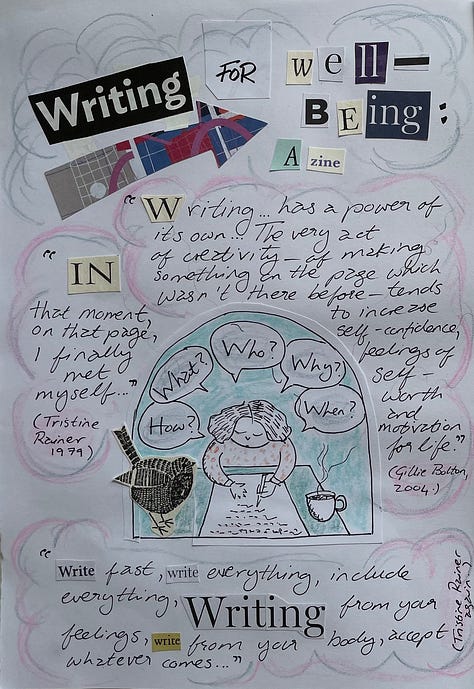 Writing FOR well—
BEing:
A zine
"Writing... has a power of
its own... The very act
of creativity – of making
something on the page which
wasn't there before – tends
to increase
self-confidence,
feelings of
self-
worth
and
motivation
for life."
(Gillie Bolton,
2004.)
"IN
that moment,
on that page,
I finally
met
myself..."
(Tristine
Rainer
1979)
How?
What?
Who?
Why?
When?
"Write fast, write everything, include
everything, Writing from your
feelings, write from your body, accept
whatever comes..."
(Tristine Rainer
again)